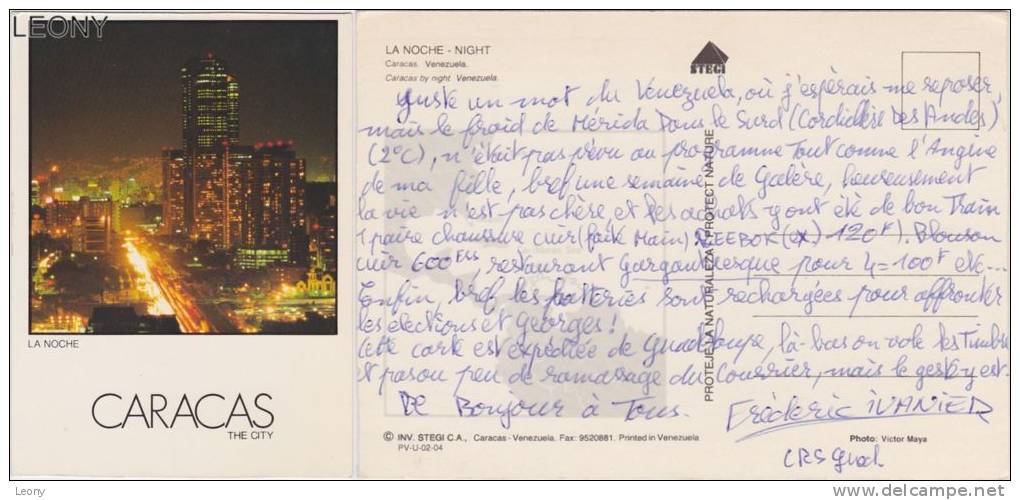 LEONY
LA NOCHE
CARACAS
THE CITY
LA NOCHE - NIGHT
Caracas. Venezuela.
Caracas by night. Venezuela.
STEGI
Juste un mot du Venezuela, où j'espérais me reposer,
mais le froid de Mérida Dans le Surd (Cordidière Des Andes)
(2°C), n'était pas prévu au programme Tout comme l'Angine
de ma fille, bref une semaine de Galère, heureusement
la vie n'est pas chère, et les achats y ont été de bon Train
1 paire chaussure cuir (fait Main) REEBOK (ex) 120F). Blouson
cuir 600Frs, restaurant gargantuesque pour 4=100F etc...
Enfin, bref les batteries sont rechargées pour affronter
les élections et Georges!
Cette carte est expédiée de Guadeloupe, là-bas on vole les Timbres
et pas ou peu de ramassage du Courrier, mais le geste y est.
De Bonjour à Tous.
Fréderic IVANIER
CRS Guad.
PROTEJE LA NATURALEZA PROTECT NATURE
© INV. STEGI C.A., Caracas - Venezuela. Fax: 9520881. Printed in Venezuela
PV-U-02-04
Photo: Victor Maya
Leony
delcampe.net